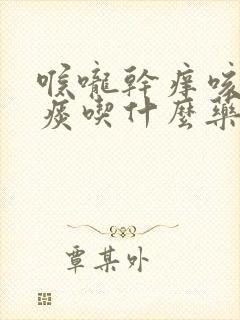 喉嚨幹痒咳
痰喫什麼藥
覃某外